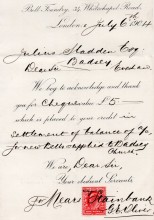 Bell Foundry, 34, Whitechapel Road,
London, July 6th 1904
Julius Sladden Esq.
Badsey
Dear Sir
We beg to acknowledge and thank
you for Cheque value £5
which is placed to your credit in
settlement of balance of a/c
for new bells supplied to Badsey
Church
We are, Dear Sir,
Your obedient Servants
for Mears & Stainbank